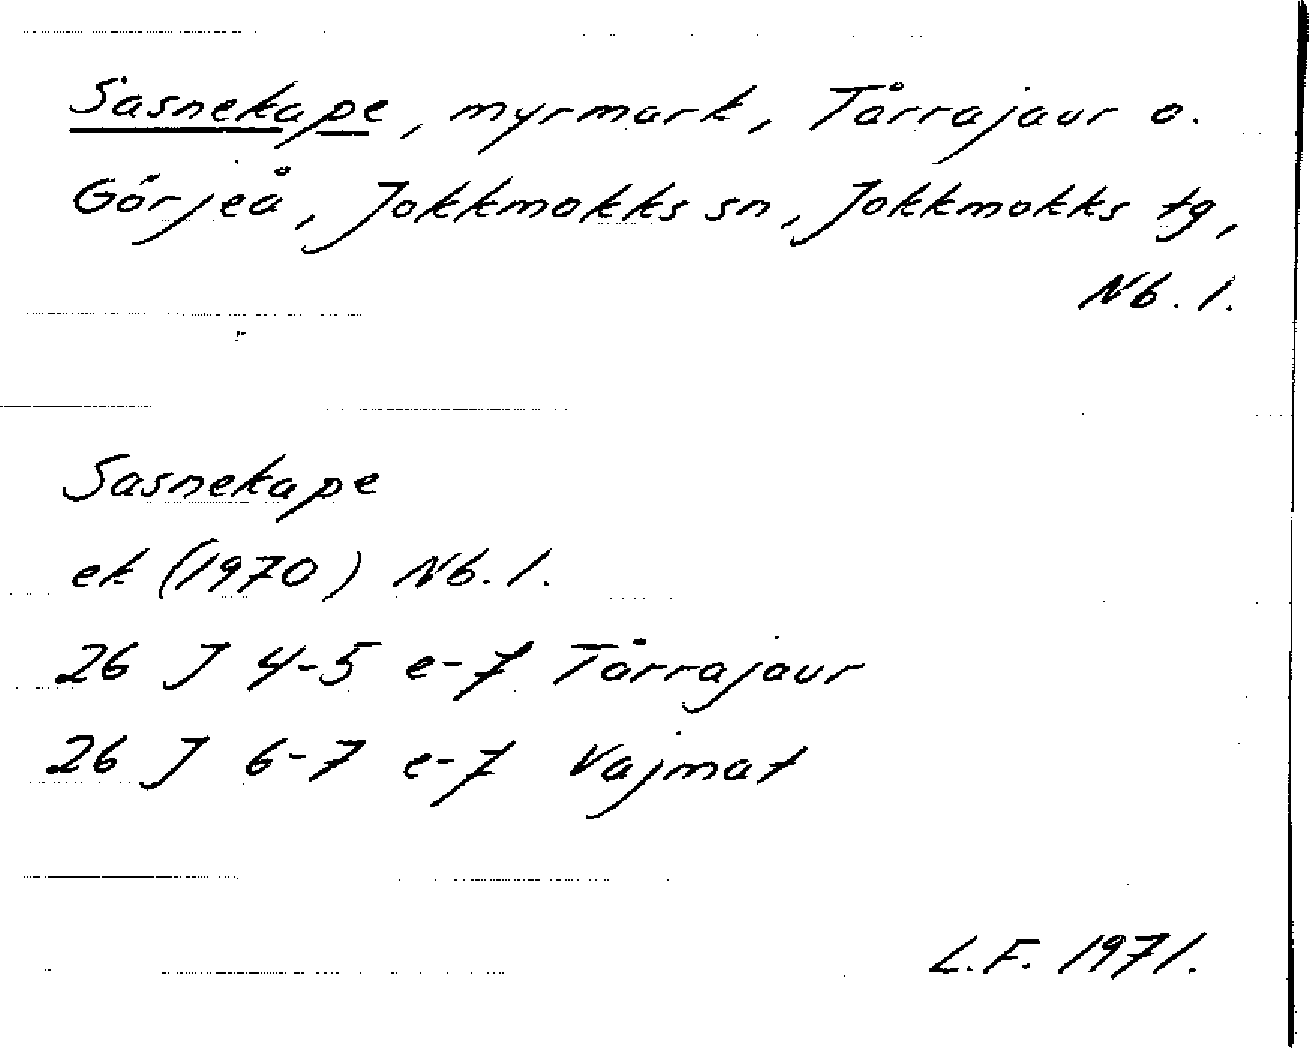 Sasnekape, myrmark, Tårrajaur o.
Görjeå, Jokkmokks sn, Jokkmokks tg,
Nb. l.
Sasnekape
ek (1970) Nb. l.
26 J 4-5 e-f Tårrajaur
26 J 6-7 e-f Vajmat
L.F. 1971.